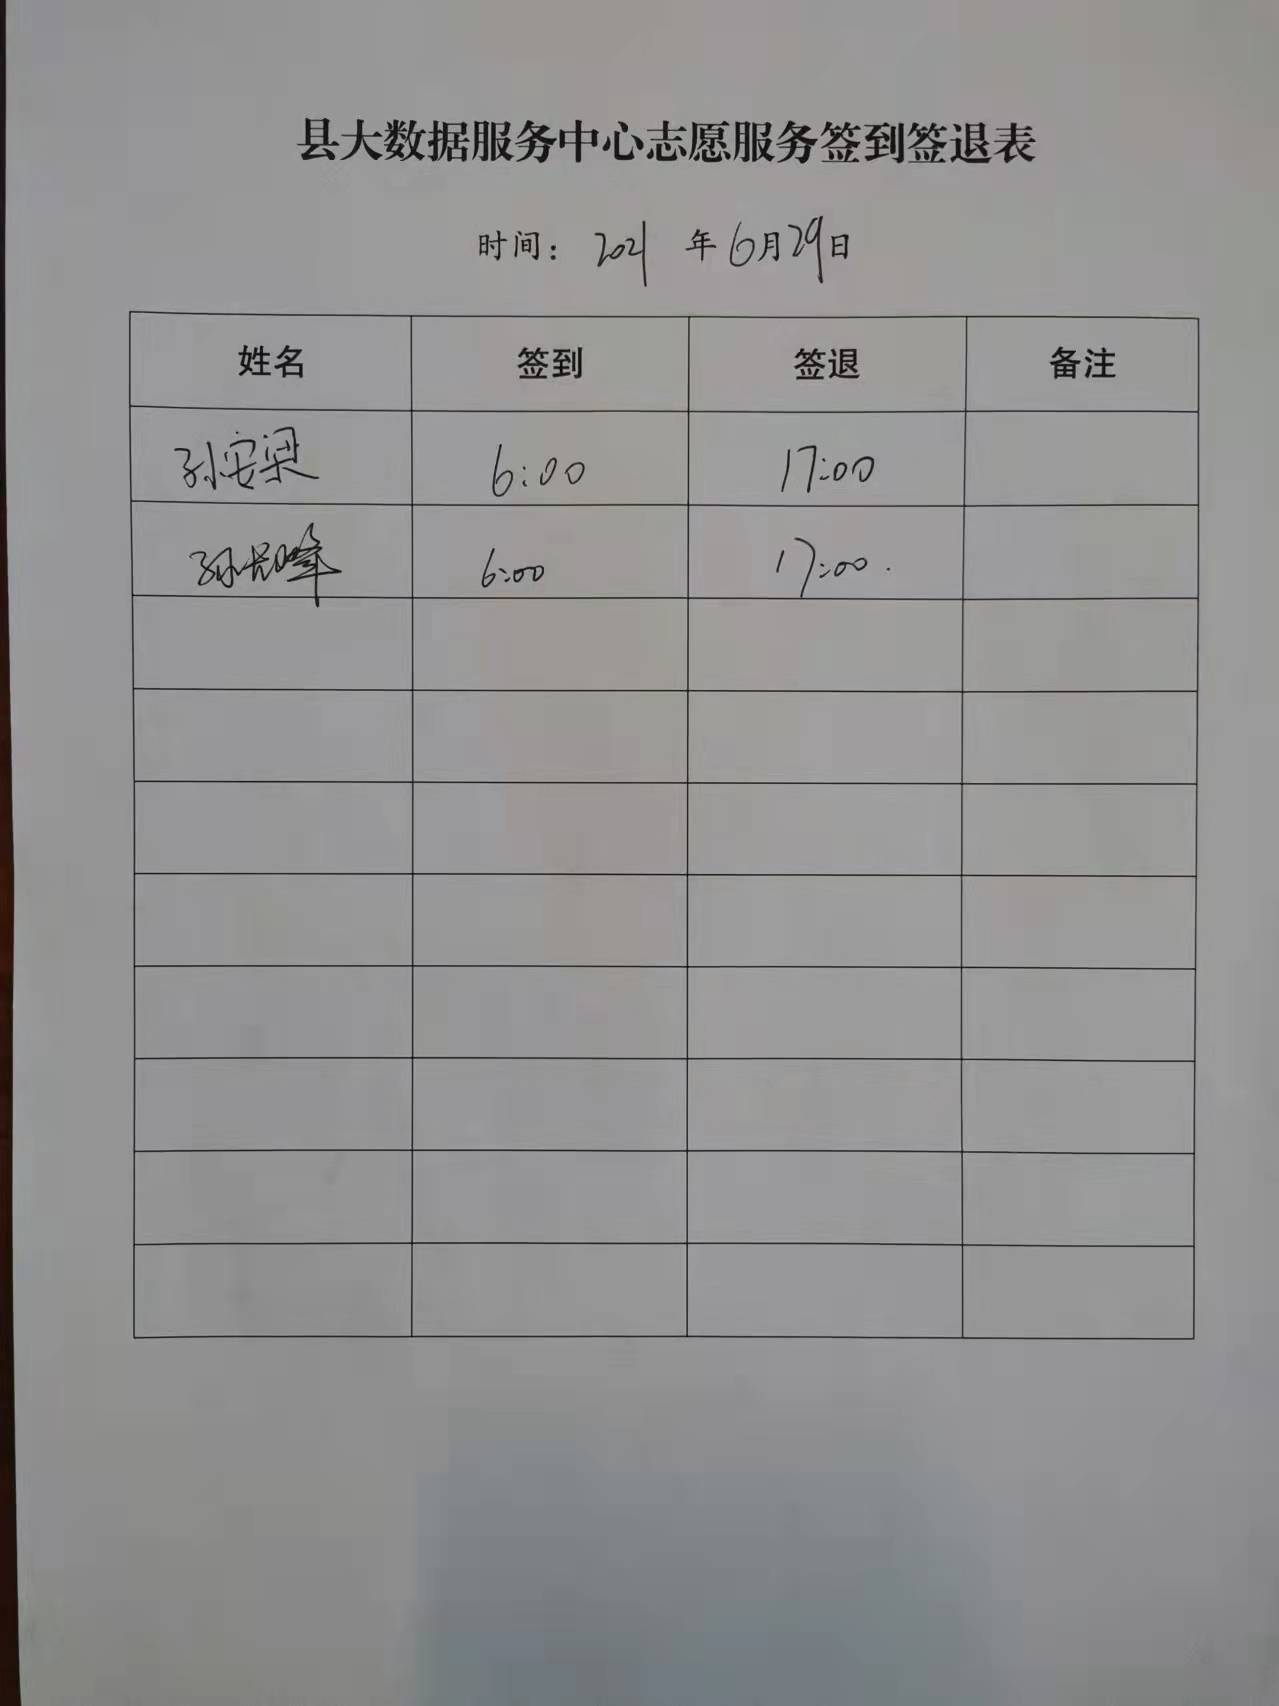 县大数据服务中心志愿服务签到签退表
时间: 2021 年 6月29日
姓名 签到 签退 备注
孙安梁 6:00 17:00
孙 6:00 17:00.